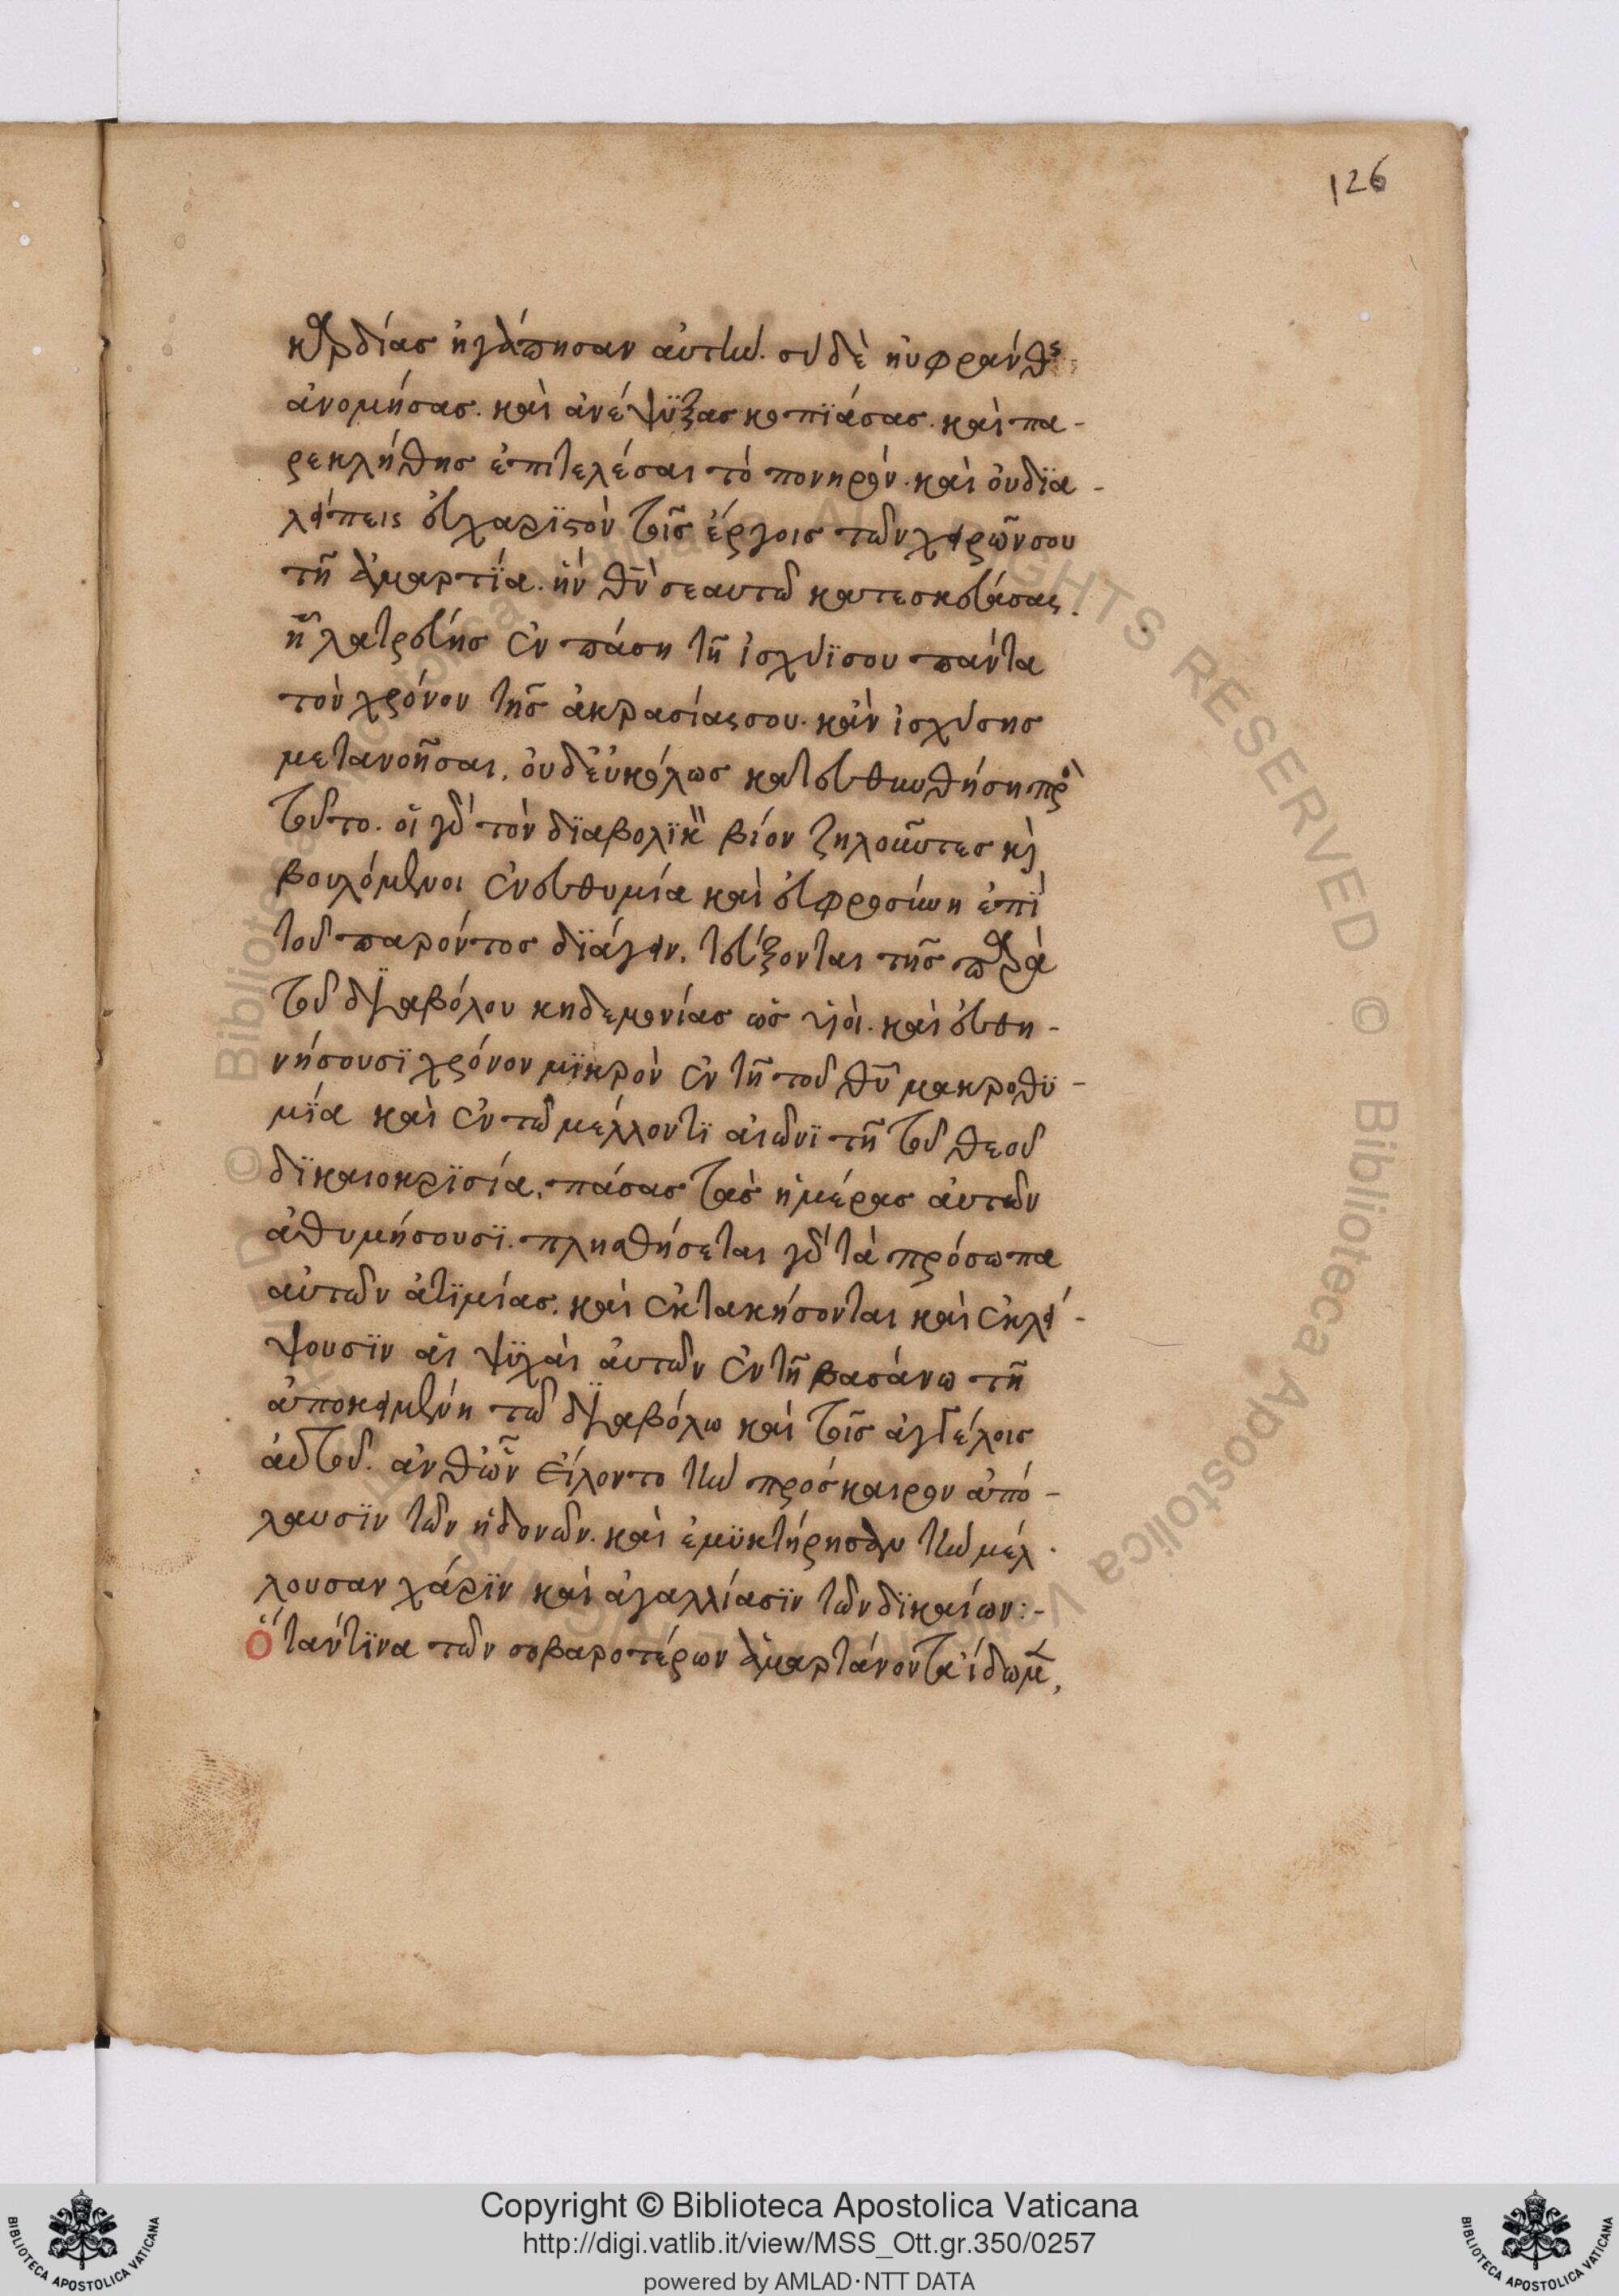 126
καρδίας ἠγάπησαν αὐτὴν. σὺ δὲ ηὐφράνθης
ἀνομήσας. καὶ ἀνέψϋξας κοπϊάσας. καὶ πα-
ρεκλήθης ἐπιτελέσαι τὸ πονηρόν. καὶ οὐ δϊα-
λείπεις εὐχαρϊστὸν τοῖς ἔργοις τῶν χειρῶν σου
τῆ ἁμαρτϊα. ἣν θν̄ σεαυτῶ κατεσκεύασας.
ἧ λατρεύης ἐν πάση τῆ ἰσχύϊ σου πάντα
τὸν χρόνον τῆς ἀκρασίας σου. κἀν ἰσχύσης
μετανοῆσαι, οὐδ εὐκόλως κατευθυνθήση πρὸς
τοῦτο. οἱ γὰρ τὸν δϊαβολϊκὸν βίον ζηλοῦντες κὶ
βουλόμενοι ἐν εὐθυμία καὶ εὐφροσύνη ἐπὶ
τοῦ παρόντος δϊάγειν. τεύξονται τῆς παρὰ
τοῦ διαβόλου κηδεμονίας ὡς υἱοὶ. καὶ εὐθη-
νήσουσϊ χρόνον μϊκρὸν ἐν τῆ τοῦ θῡ μακροθϋ-
μϊα καὶ ἐν τῶ μέλλοντϊ αἰῶνϊ τῆ τοῦ θεοῦ
δϊκαιοκρϊσία, πάσας τὰς ἡμέρας αὐτῶν
ἀθυμήσουσϊ. πλησθήσεται γὰρ τὰ πρόσωπα
αὐτῶν ἀτϊμίας. καὶ ἐκτακήσονται καὶ ἐκλεί-
ψουσϊν αἱ ψϋχαὶ αὐτῶν ἐν τῆ βασάνω τῆ
ἀποκειμένη τῶ διαβόλω καὶ τοῖς ἀγγέλοις
αὐτοῦ. ἀνθῶν εἵλοντο τὴν πρόσκαιρον ἀπό-
λαυσϊν τῶν ἡδονῶν. καὶ ἐμϋκτήρησαν τὴν μέλ-
λουσαν χάρϊν καὶ ἀγαλλίασϊν τῶν δϊκαίων:-
Ὅταν τϊνα τῶν σοβαροτέρων ἁμαρτάνοντα ἴδωμεν,
Copyright © Biblioteca Apostolica Vaticana
http://digi.vatlib.it/view/MSS_Ott.gr.350/0257
powered by AMLAD·NTT DATA